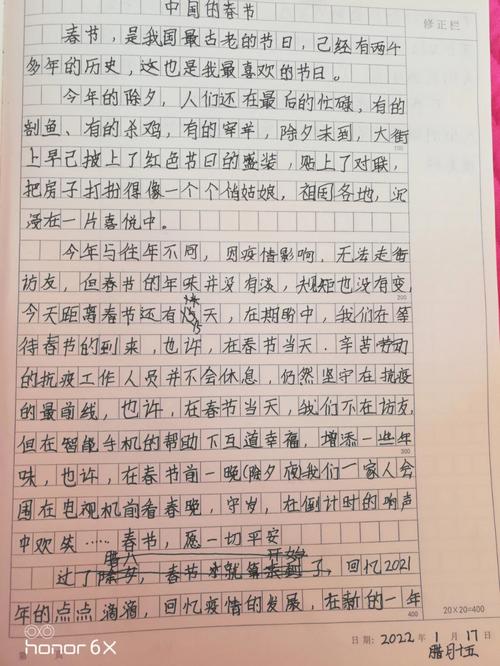 中国的春节
修正栏
春节，是我国最古老的节日，己经有两千
多年的历史，这也是我最喜欢的节日。
今年的除夕，人们还在最后的忙碌，有的
割鱼、有的杀鸡，有的宰羊，除夕未到，大街
上早己披上了红色节日的盛装，贴上了对联，
把房子打扮得像一个个俏姑娘，祖国各地，沉
100
浸在一片喜悦中。
今年与往年不同，因疫情影响，无法走街
访友，但春节的年味并没有淡，规矩也没有变，
200
今天距离春节还有15天，在期盼中，我们在等
待春节的到来，也许，在春节当天，辛苦劳动
的抗疫工作人员并不会休息，仍然坚守在抗疫
的最前线，也许，在春节当天，我们不在访友，
但在智能手机的帮助下互道幸福，增添一些年
300
味，也许，在春节前一晚(除夕夜)我们一家人会
围在电视机前看春晚，守岁，在倒计时的响声
中欢笑……春节，愿一切平安
腊八 开始
过了除夕，春节才就算来到了，回忆2021
年的点点滴滴，回忆疫情的发展，在新的一年
400
20×20=400
日期：2022年1月17日
腊月十五
honor 6X